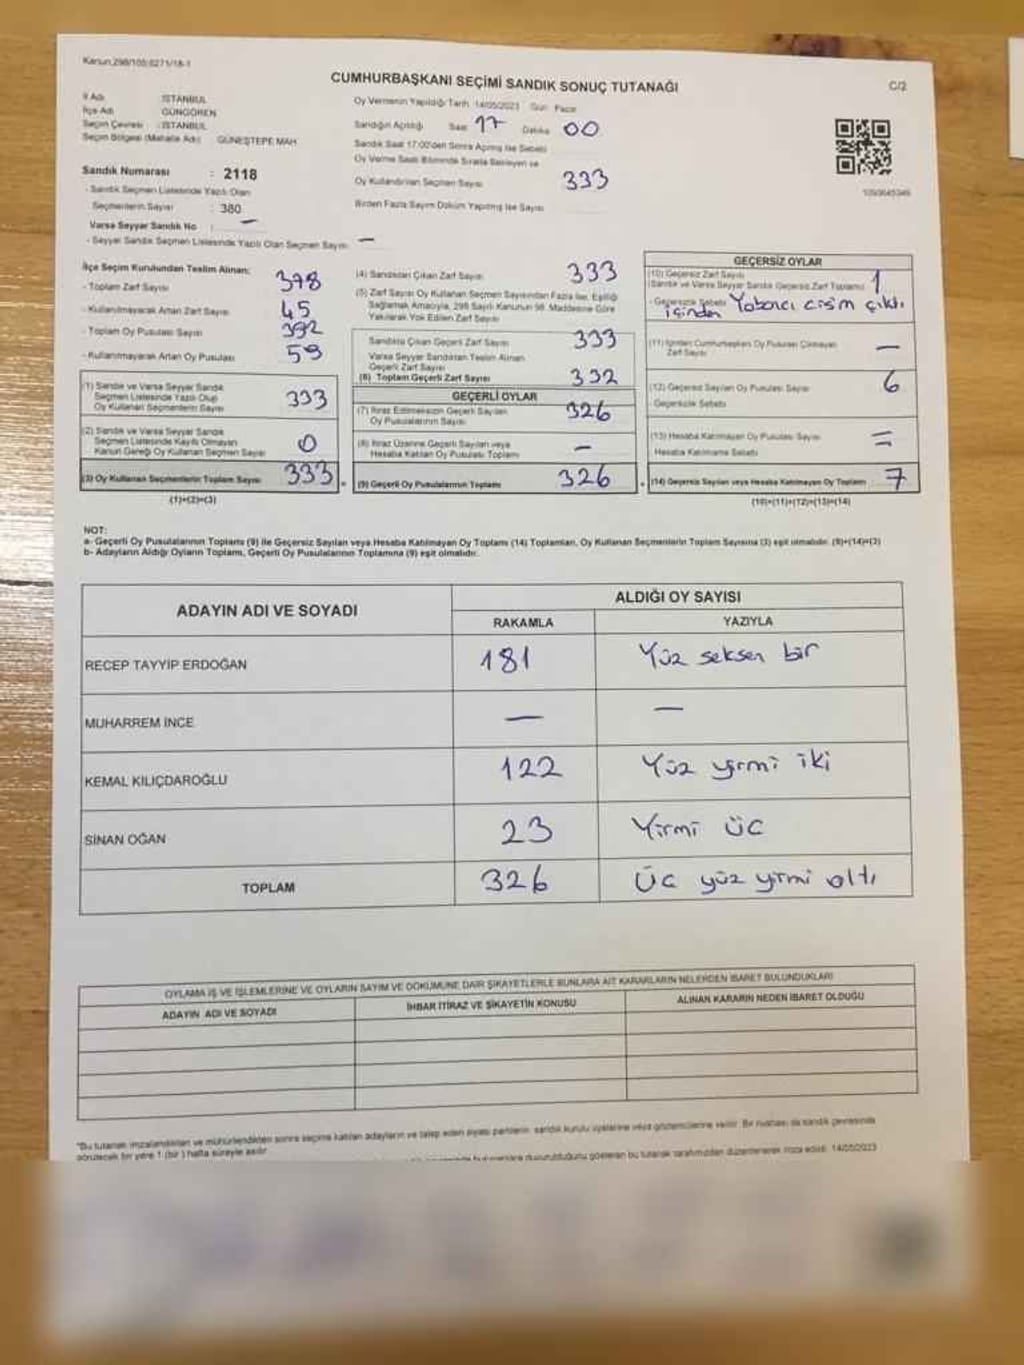 Kanun:298/105;6271/18-1
CUMHURBAŞKANI SEÇİMİ SANDIK SONUÇ TUTANAĞI
C/2
İl Adı : İSTANBUL
İlçe Adı : GÜNGÖREN
Seçim Çevresi : İSTANBUL
Seçim Bölgesi (Mahalle Adı) : GÜNEŞTEPE MAH
Sandık Numarası : 2118
- Sandık Seçmen Listesinde Yazılı Olan
Seçmenlerin Sayısı : 380
Varsa Seyyar Sandık No : —
- Seyyar Sandık Seçmen Listesinde Yazılı Olan Seçmen Sayısı : —
Oy Vermenin Yapıldığı Tarih: 14/05/2023 Gün: Pazar
Sandığın Açılışı Saat 17 Dakika 00
Sandık Saat 17:00'den Sonra Açılmış İse Sebebi
Oy Verme Saati Bitiminde Sırada Bekleyen ve
Oy Kullandırılan Seçmen Sayısı 333
Birden Fazla Sayım Döküm Yapılmış İse Sayısı
İlçe Seçim Kurulundan Teslim Alınan:
- Toplam Zarf Sayısı 378
- Kullanılmayarak Artan Zarf Sayısı 45
- Toplam Oy Pusulası Sayısı 392
- Kullanılmayarak Artan Oy Pusulası 59
(1) Sandık ve Varsa Seyyar Sandık
Seçmen Listesinde Yazılı Olup
Oy Kullanan Seçmenlerin Sayısı 333
(2) Sandık ve Varsa Seyyar Sandık
Seçmen Listesinde Kayıtlı Olmayan
Kanun Gereği Oy Kullanan Seçmen Sayısı 0
(3) Oy Kullanan Seçmenlerin Toplam Sayısı 333
(1)+(2)=(3)
(4) Sandıktan Çıkan Zarf Sayısı 333
(5) Zarf Sayısı Oy Kullanan Seçmen Sayısından Fazla İse, Eşitliği
Sağlamak Amacıyla, 298 Sayılı Kanunun 98. Maddesine Göre
Yakılarak Yok Edilen Zarf Sayısı
Sandıkta Çıkan Geçerli Zarf Sayısı 333
Varsa Seyyar Sandıktan Teslim Alınan
Geçerli Zarf Sayısı
(6) Toplam Geçerli Zarf Sayısı 332
GEÇERLİ OYLAR
(7) İtiraz Edilmeksizin Geçerli Sayılan
Oy Pusulalarının Sayısı 326
(8) İtiraz Üzerine Geçerli Sayılan veya
Hesaba Katılan Oy Pusulası Toplamı —
(9) Geçerli Oy Pusulalarının Toplamı 326
GEÇERSİZ OYLAR
(10) Geçersiz Zarf Sayısı
(Sandık ve Varsa Seyyar Sandık Geçersiz Zarf Toplamı) 1
- Geçersizlik Sebebi Yabancı cisim çıktı
içinden
(11) İçinden Cumhurbaşkanı Oy Pusulası Çıkmayan
Zarf Sayısı —
(12) Geçersiz Sayılan Oy Pusulası Sayısı 6
- Geçersizlik Sebebi
(13) Hesaba Katılmayan Oy Pusulası Sayısı =
Hesaba Katılmama Sebebi
(14) Geçersiz Sayılan veya Hesaba Katılmayan Oy Toplamı 7
(10)+(11)+(12)+(13)=(14)
NOT:
a- Geçerli Oy Pusulalarının Toplamı (9) ile Geçersiz Sayılan veya Hesaba Katılmayan Oy Toplamı (14) Toplamları, Oy Kullanan Seçmenlerin Toplam Sayısına (3) eşit olmalıdır. (9)+(14)=(3)
b- Adayların Aldığı Oyların Toplamı, Geçerli Oy Pusulalarının Toplamına (9) eşit olmalıdır.
ADAYIN ADI VE SOYADI
ALDIĞI OY SAYISI
RAKAMLA YAZIYLA
RECEP TAYYİP ERDOĞAN 181 Yüz seksen bir
MUHARREM İNCE — —
KEMAL KILIÇDAROĞLU 122 Yüz yirmi iki
SİNAN OĞAN 23 Yirmi üc
TOPLAM 326 Üc yüz yirmi altı
OYLAMA İŞ VE İŞLEMLERİNE VE OYLARIN SAYIM VE DÖKÜMÜNE DAİR ŞİKAYETLERLE BUNLARA AİT KARARLARIN NELERDEN İBARET BULUNDUKLARI
ADAYIN ADI VE SOYADI
İHBAR İTİRAZ VE ŞİKAYETİN KONUSU
ALINAN KARARIN NEDEN İBARET OLDUĞU
*Bu tutanak imzalandıktan ve mühürlendikten sonra seçime katılan adayların ve talep eden siyasi partilerin sandık kurulu üyelerine veya gözlemcilerine verilir. Bir nüshası da sandık çevresinde
görülecek bir yere 1 (bir) hafta süreyle asılır.
bu tutanak tarafımızdan düzenlenerek imza edildi. 14/05/2023